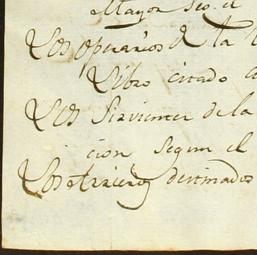 Mayor Seo. el
Los Operarios de la
Libro citado a
Los Sirvientes de la
cion segun el
Los Arrieros destinados